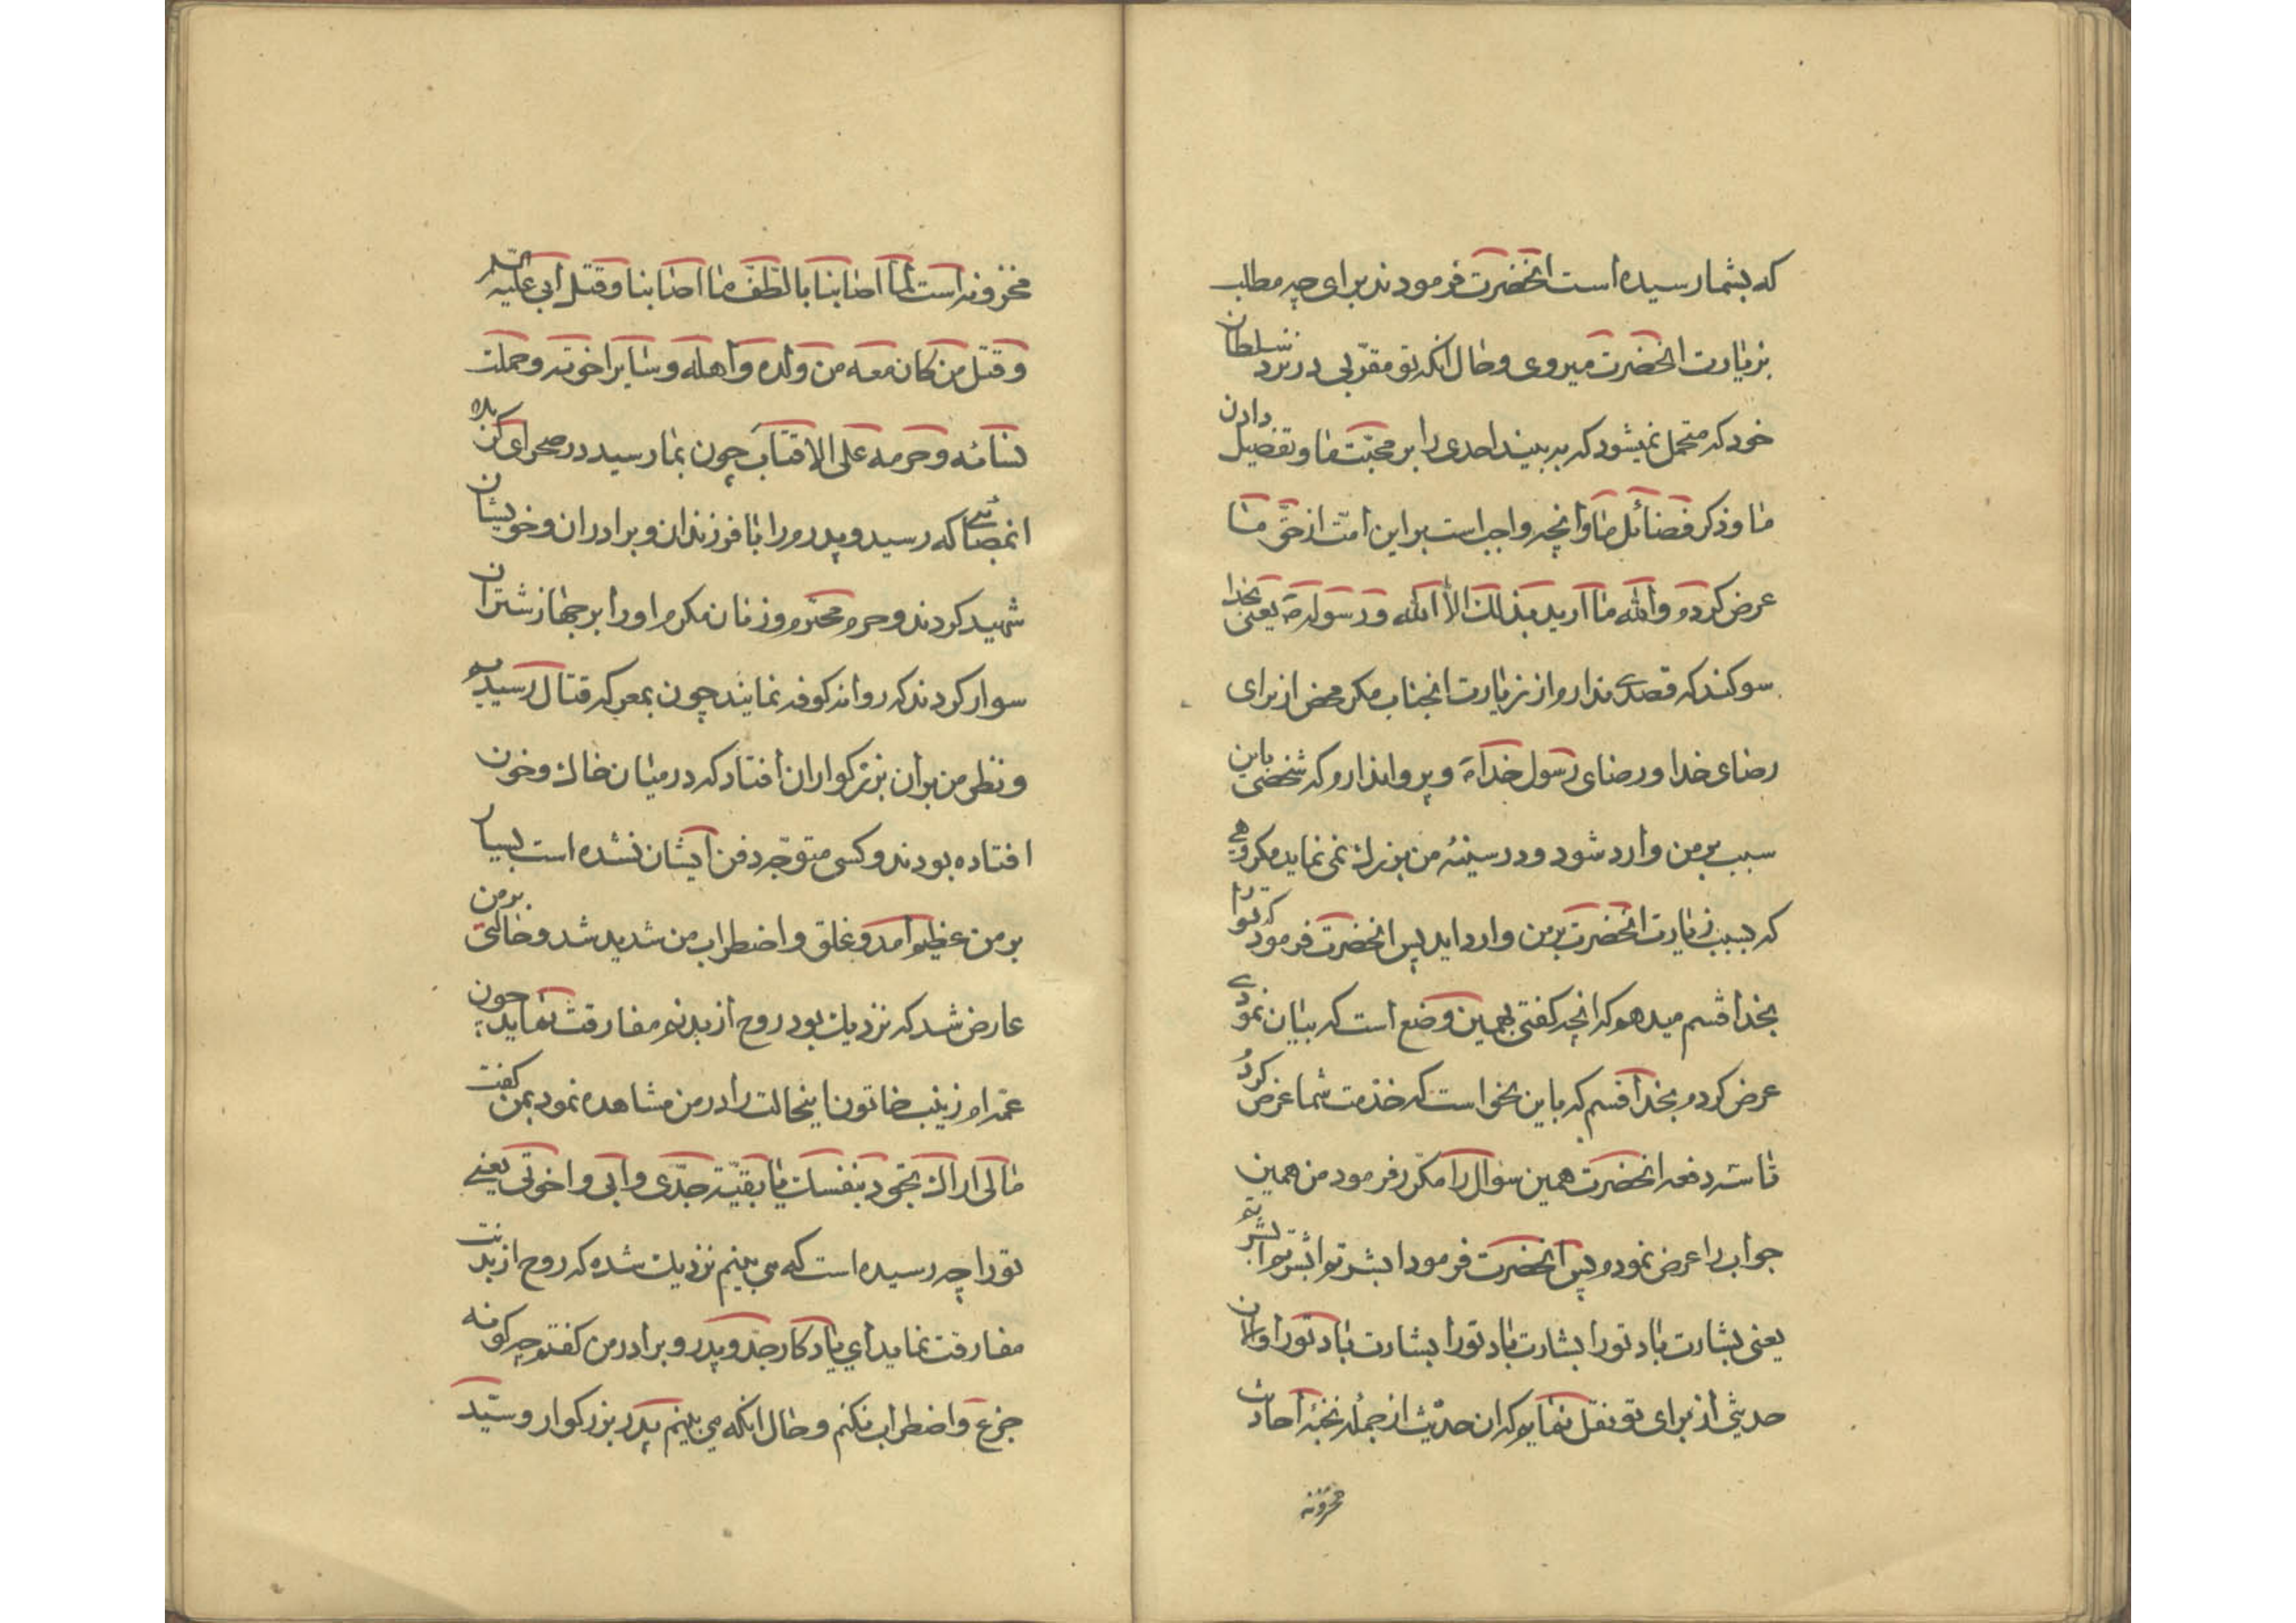 که بشما رسیده است انحضرت فرمودند برای چه مطلب
بزیارت انحضرت میروی و حال انکه تو مقربی در نزد سلطان
خود که متحمل نمیشود که به بیند احدی را بر محبت ما و تفضیل دادن
ما و ذکر فضائل ما و انچه واجب است بر این امت از حق ما
عرض کردم والله ما ارید بذلک الا الله و رسوله ص یعنی بخدا
سوکند که قصدی ندارم از زیارت انجناب مکر محض از برای
رضای خدا و رضای رسول خدا ص و پروا ندارم که شخصی باین
سبب بر من وارد شود و در سینهٔ من بزرک نمی نماید مکروهی
که بسبب زیارت انحضرت بر من وارد اید پس انحضرت فرمود که تو را
بخدا قسم میدهم که انچه کفتی بهمین وضع است که بیان نمودی
عرض کردم بخدا قسم که باین نحو است که خدمت شما عرض کردم
تا سه دفعه انحضرت همین سؤال را مکرر فرمود من همین
جواب را عرض نمودم پس انحضرت فرمود ابشر ثم ابشر ثم ابشر
یعنی بشارت باد تو را بشارت باد تو را بشارت باد تو را و الان
حدیثی از برای تو نقل نمایم که ان حدیث از جملهٔ نخبهٔ احادیث
مخزونه
مخزونه است لما اصابنا بالطف ما اصابنا و قتل ابی علیه السلم
و قتل من کان معه من ولده و اهله و سایر اخوته و حملت
نسائه و حرمه علی الاقتاب چون بما رسید در صحرای کربلا
ان مصائبی که رسید و پدرم را با فرزندان و برادران و خویشان
شهید کردند و حرم محترم و زنان مکرم او را بر جهاز شتران
سوار کردند که روانه کوفه نمایند چون بمعرکه قتال رسیدیم
و نظر من بر ان بزرکواران افتاد که در میان خاک و خون
افتاده بودند و کسی متوجه دفن ایشان نشده است بسیار
بر من عظیم امد و غلق و اضطراب من شدید شد و حالتی بر من
عارض شد که نزدیک بود روح از بدنم مفارقت نماید چون
عمه ام زینب خاتون اینحالت را در من مشاهده نمود بمن کفت
ما لی اراک تجود بنفسک یا بقیة جدی و ابی و اخوتی یعنی
تو را چه رسیده است که می بینم نزدیک شده که روح از بدنت
مفارقت نماید ای یادکار جد و پدر و برادر من کفتم چه کونه
جزع و اضطراب نکنم و حال انکه می بینم پدر بزرکوار و سید